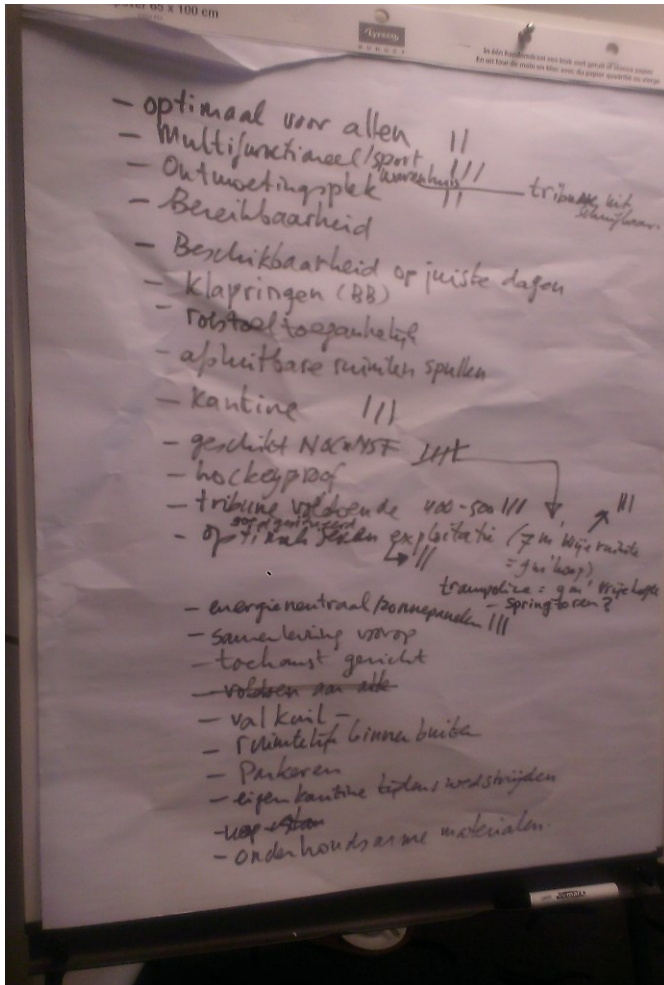 65 x 100 cm
Lyreco
BUDGET
- optimaal voor allen ||
- Multifunctioneel/sport |||
warenhuis
- Ontmoetingsplek || tribune uit
schuifbaar.
- Bereikbaarheid
- Beschikbaarheid op juiste dagen
- Klapringen (BB)
- rolstoeltoegankelijk
- afsluitbare ruimten spullen
- Kantine |||
- geschikt NOC*NSF
- hockeyproof
- tribune voldoende 400-500 ||| |||
- exploitatie (7 m' vrije ruimte
|| = 9 m' hoog)
trampoline = 9 m' vrije hoogte
- springtoren?
- energieneutraal/zonnepanelen |||
- samenleving voorop
- toekomst gericht
- voldoen aan alle
- valkuil -
- ruimtelijk binnen buiten
- Parkeren
- eigen kantine tijdens wedstrijden
- onderhoudsarme materialen.